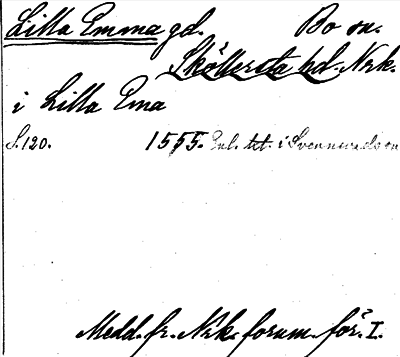 Lilla Emma gd. Bo sn.
Sköllersta hd. Nrk.
i Lilla Ema
S. 120. 1555. Enl. tit. i Svennevads sn
Medd. fr. Nrk. fornm. för. I.